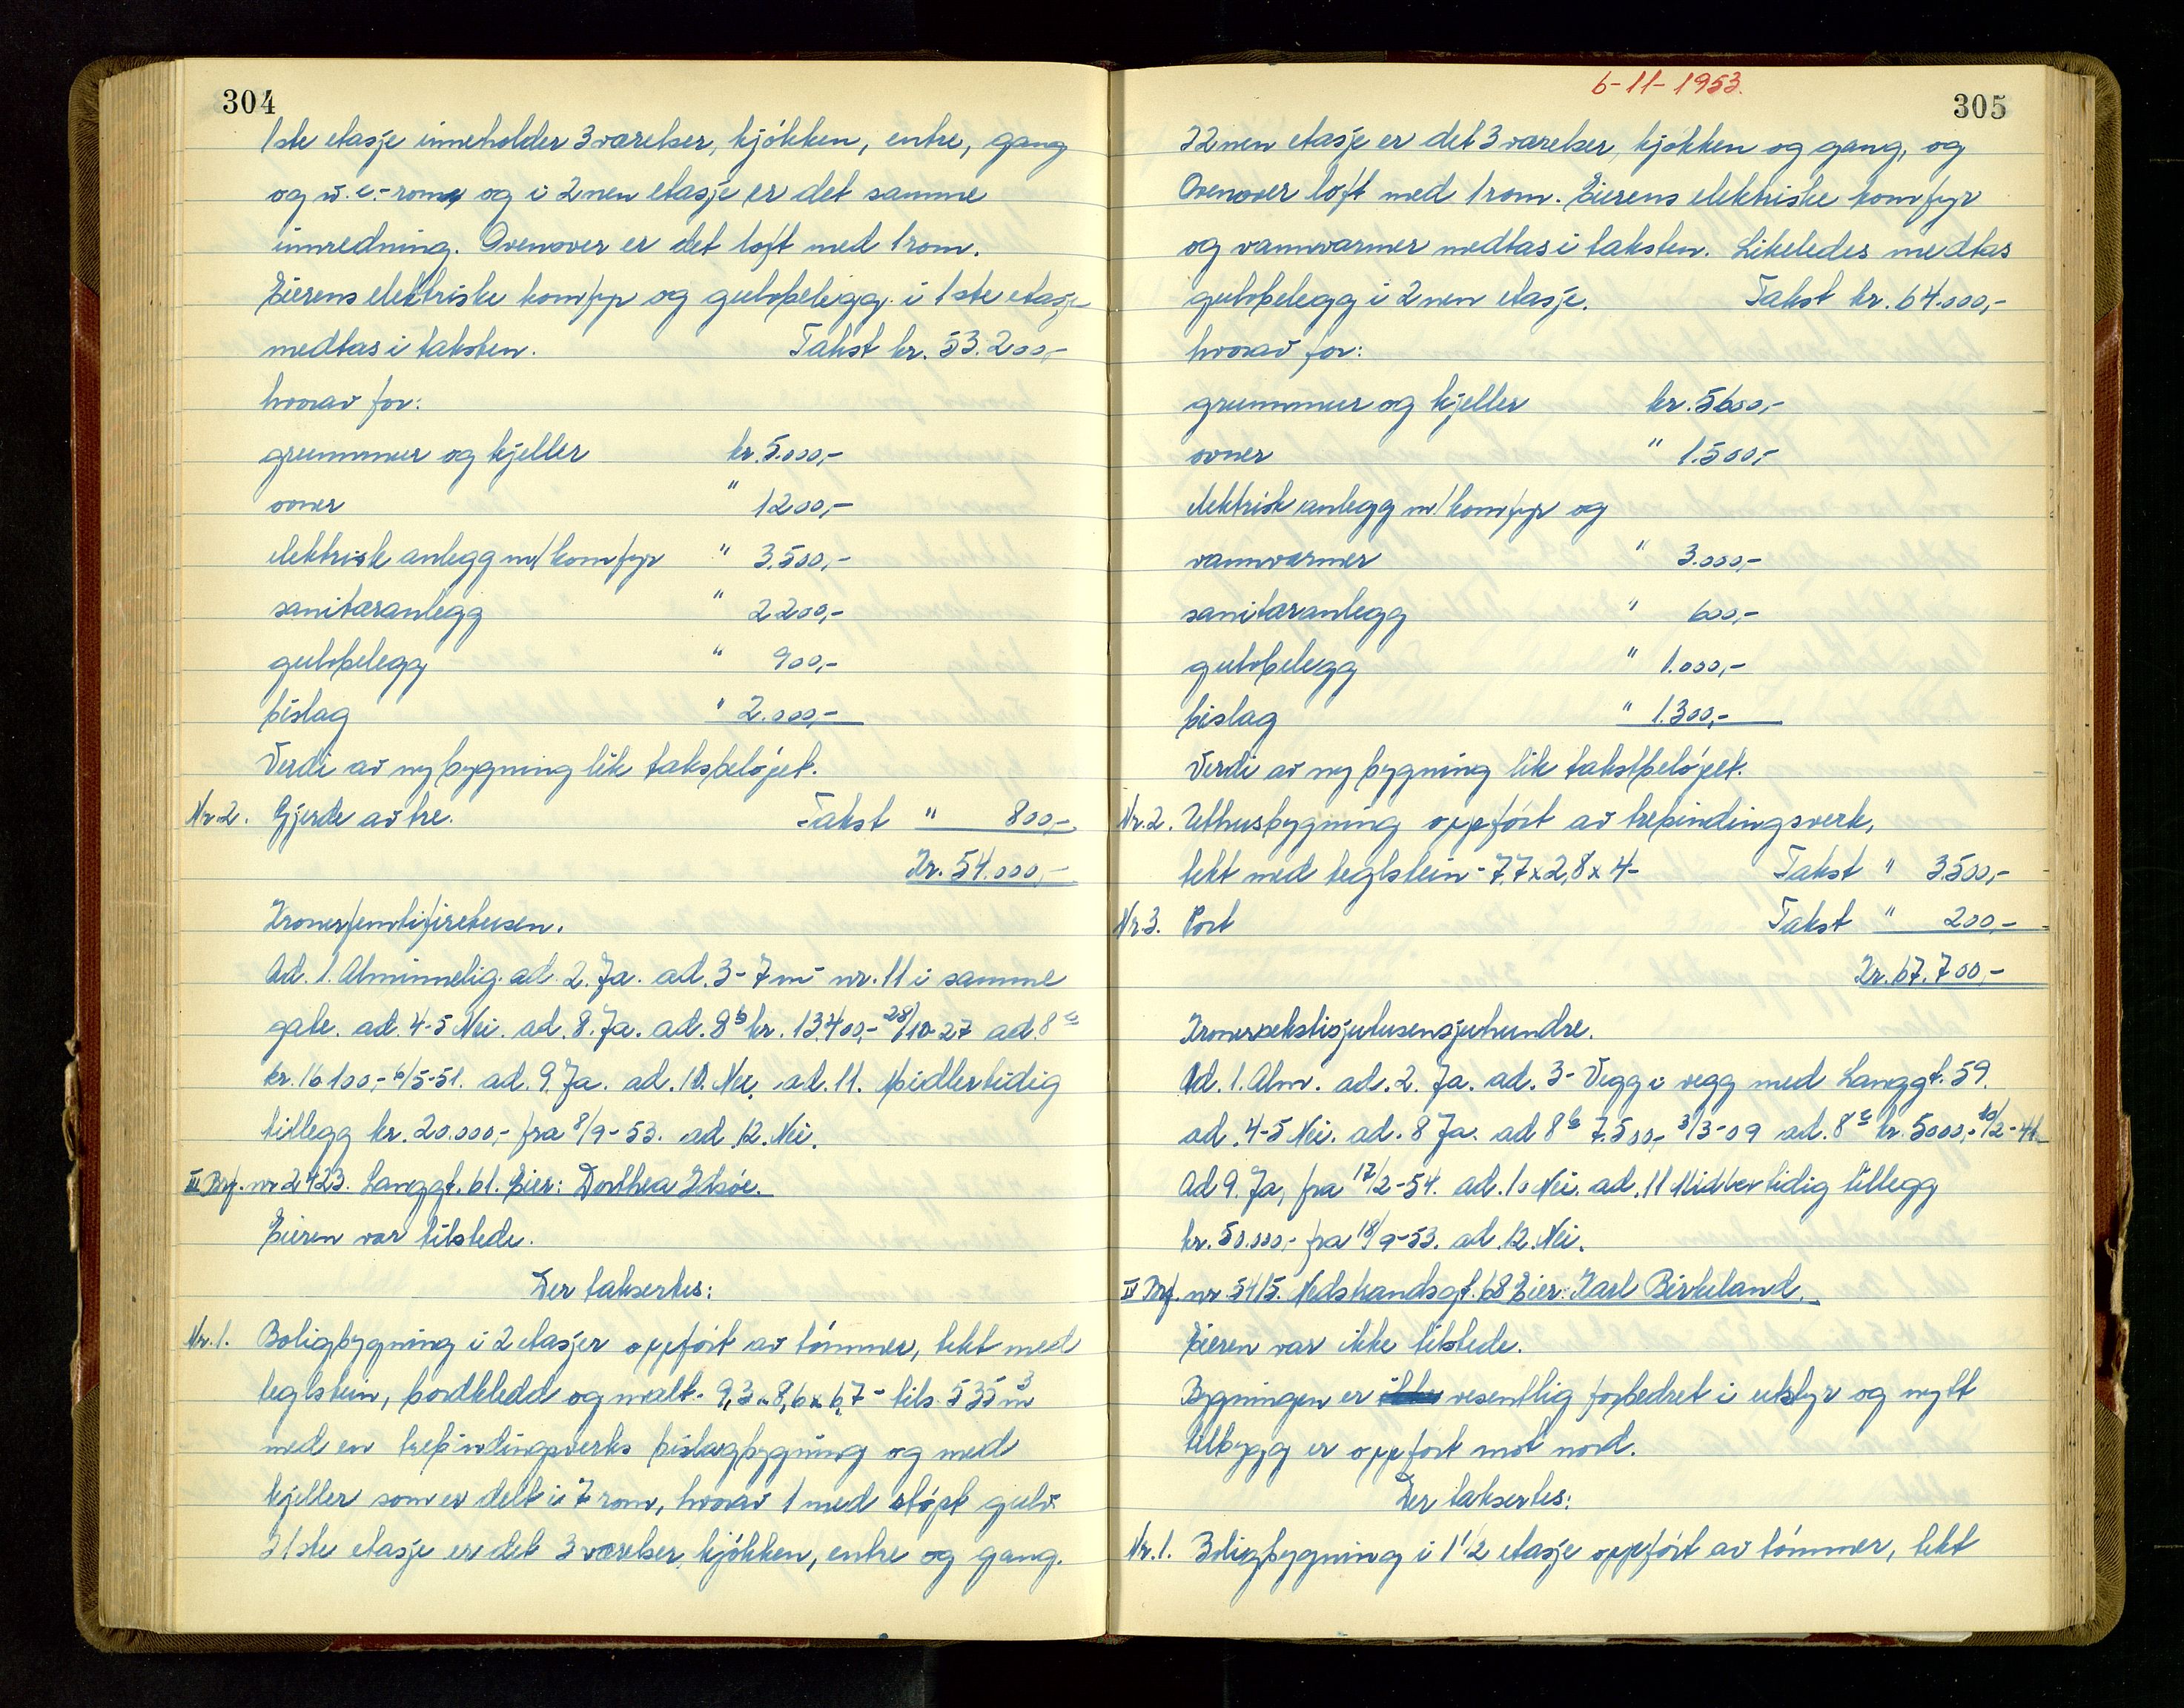 304
1ste etasje inneholder 3 værelser, kjøkken, entre, gang
og w.c.-rom og i 2nen etasje er det samme
innredning. Ovenover er det loft med 1 rom.
Eierens elektriske komfyr og gulvbelegg i 1ste etasje
medtas i taksten. Takst kr. 53.200,-
hvorav for:
grunnmur og kjeller kr. 5.000,-
ovner " 1200,-
elektrisk anlegg m/komfyr " 3.500,-
sanitæranlegg " 2200,-
gulvbelegg " 900,-
bislag " 2.000,-
Verdi av ny bygning lik taksbeløpet.
Nr. 2. Gjerde av tre. Takst " 800,-
Kr. 54.000,-
Kronerfemtifiretusen.
Ad. 1. Alminnelig. ad. 2. Ja. ad. 3 - 7 m - nr. 11 i samme
gate. ad. 4-5 Nei. ad. 8. Ja. ad. 8b kr. 13.400,- 28/10-27 ad. 8c
kr. 16100,- 6/5-51. ad. 9. Ja. ad. 10. Nei. ad. 11. Midlertidig
tillegg kr. 20.000,- fra 8/9-53. ad. 12. Nei.
III Brf. nr 2423. Langgt. 61. Eier: Dorthea
Eieren var tilstede.
Der taksertes:
Nr. 1. Boligbygning i 2 etasjer oppført av tømmer, tekt med
teglstein, bordkledd og malt - 9,3 x 8,6 x 6,7 - tils. 535 m3
med en trebindingsverks bislagbygning og med
kjeller som er delt i 7 rom, hvorav 1 med støpt gulv.
I 1ste etasje er det 3 værelser, kjøkken, entre og gang.
6-11-1953.
305
I 2nen etasje er det 3 værelser, kjøkken og gang, og
Ovenover loft med 1 rom. Eierens elektriske komfyr
og vannvarmer medtas i taksten. Likeledes medtas
gulvbelegg i 2nen etasje. Takst kr. 64.000,-
hvorav for:
grunnmur og kjeller kr. 5600,-
ovner " 1.500,-
elektrisk anlegg m/komfyr og
vannvarmer " 3.000,-
sanitæranlegg " 600,-
gulvbelegg " 1.000,-
bislag " 1.300,-
Verdi av ny bygning lik takstbeløpet.
Nr. 2. Uthusbygning oppført av trebindingsverk,
tekt med teglstein - 7,7 x 2,8 x 4 - Takst " 3.500,-
Nr. 3. Port Takst " 200,-
Kr. 67.700,-
Kronersekstisjutusensjuhundre.
Ad. 1. Alm. ad. 2. Ja. ad. 3 - Vegg i vegg med Langgt. 59.
ad. 4-5 Nei. ad. 8 Ja. ad 8b 7.500,- 3/3-09 ad. 8c kr. 5000,- 10/2-41
Ad 9. Ja, fra 17/2-54. ad. 10 Nei. ad. 11 Midlertidig tillegg
kr. 50.000,- fra 18/9-53. ad. 12. Nei.
IV Brf. nr. 5415. Nedstrandsgt. 68 Eier: Karl Birkeland.
Eieren var ikke tilstede.
Bygningen er vesentlig forbedret i utstyr og nytt
tilbygg er oppført mot nord.
Der taksertes:
Nr. 1. Boligbygning i 1 1/2 etasje oppført av tømmer, tekt